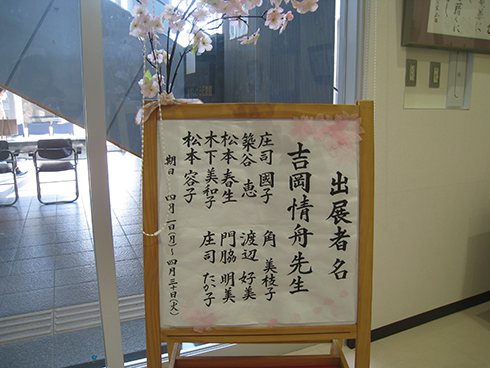 出展者名
吉岡情舟先生
庄司 國子 角 美枝子
築谷 恵 渡辺 好美
松本 春生 門脇 明美
木下 美和子 庄司 たか子
松本 容子
期日 四月一日(月)～四月三十日(火)